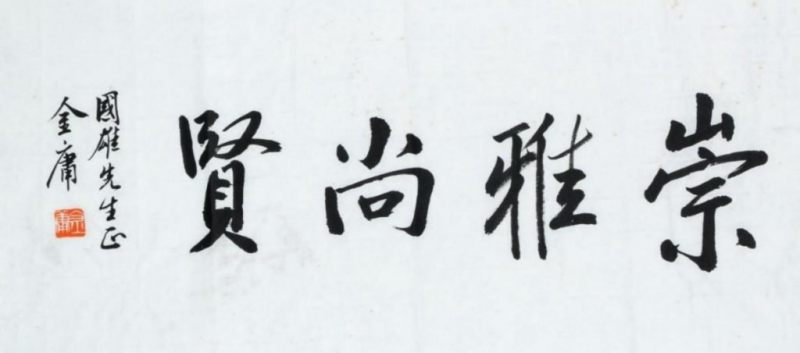 崇雅尚賢
國雄先生正
金庸